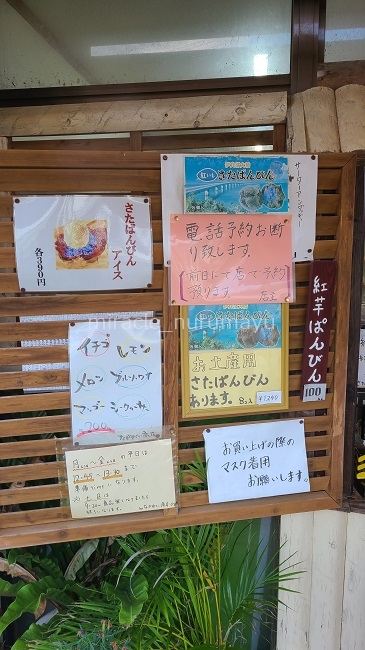 さたぱんびん
アイス
各390円
伊良部大橋
紅いも
さたぱんびん
サーターアンダギー
電話予約お断
り致します。
前日にて店で予約
預ります。
店主
お土産用
さたぱんびん
あります。
8コ入
¥1,240
紅芋ぱんびん
100
イチゴ
レモン
メロン
ブルーハワイ
マンゴー
miracle_nurumayu
の平日は
まで
になります。
土日は
お買い上げの際の
マスク着用
お願いします。